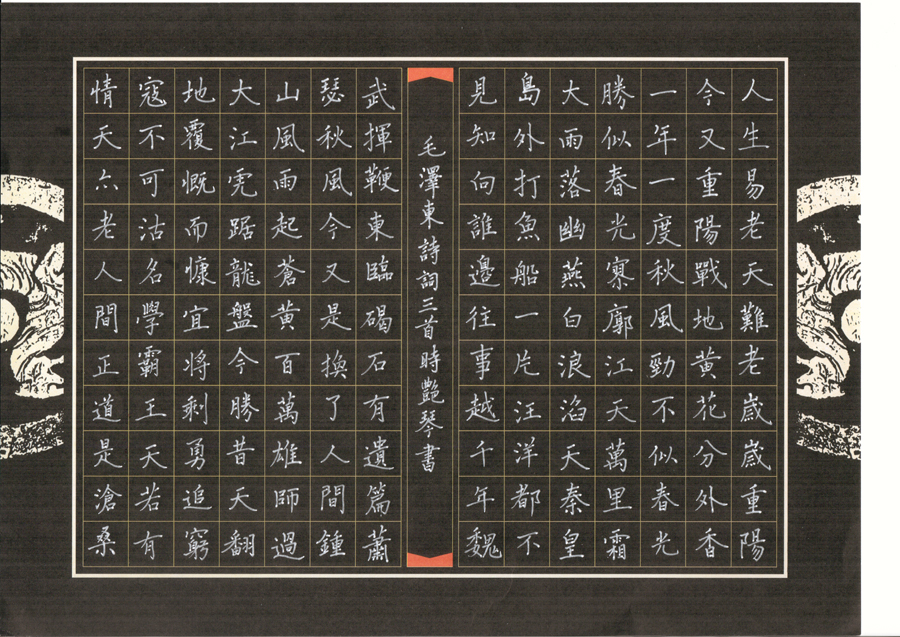 人生易老天難老歲歲重陽
今又重陽戰地黃花分外香
一年一度秋風勁不似春光
勝似春光寥廓江天萬里霜
大雨落幽燕白浪滔天秦皇
島外打魚船一片汪洋都不
見知向誰邊往事越千年魏
毛澤東詩詞三首時艷琴書
武揮鞭東臨碣石有遺篇蕭
瑟秋風今又是換了人間鍾
山風雨起蒼黃百萬雄師過
大江虎踞龍盤今勝昔天翻
地覆慨而慷宜將剩勇追窮
寇不可沽名學霸王天若有
情天亦老人間正道是滄桑